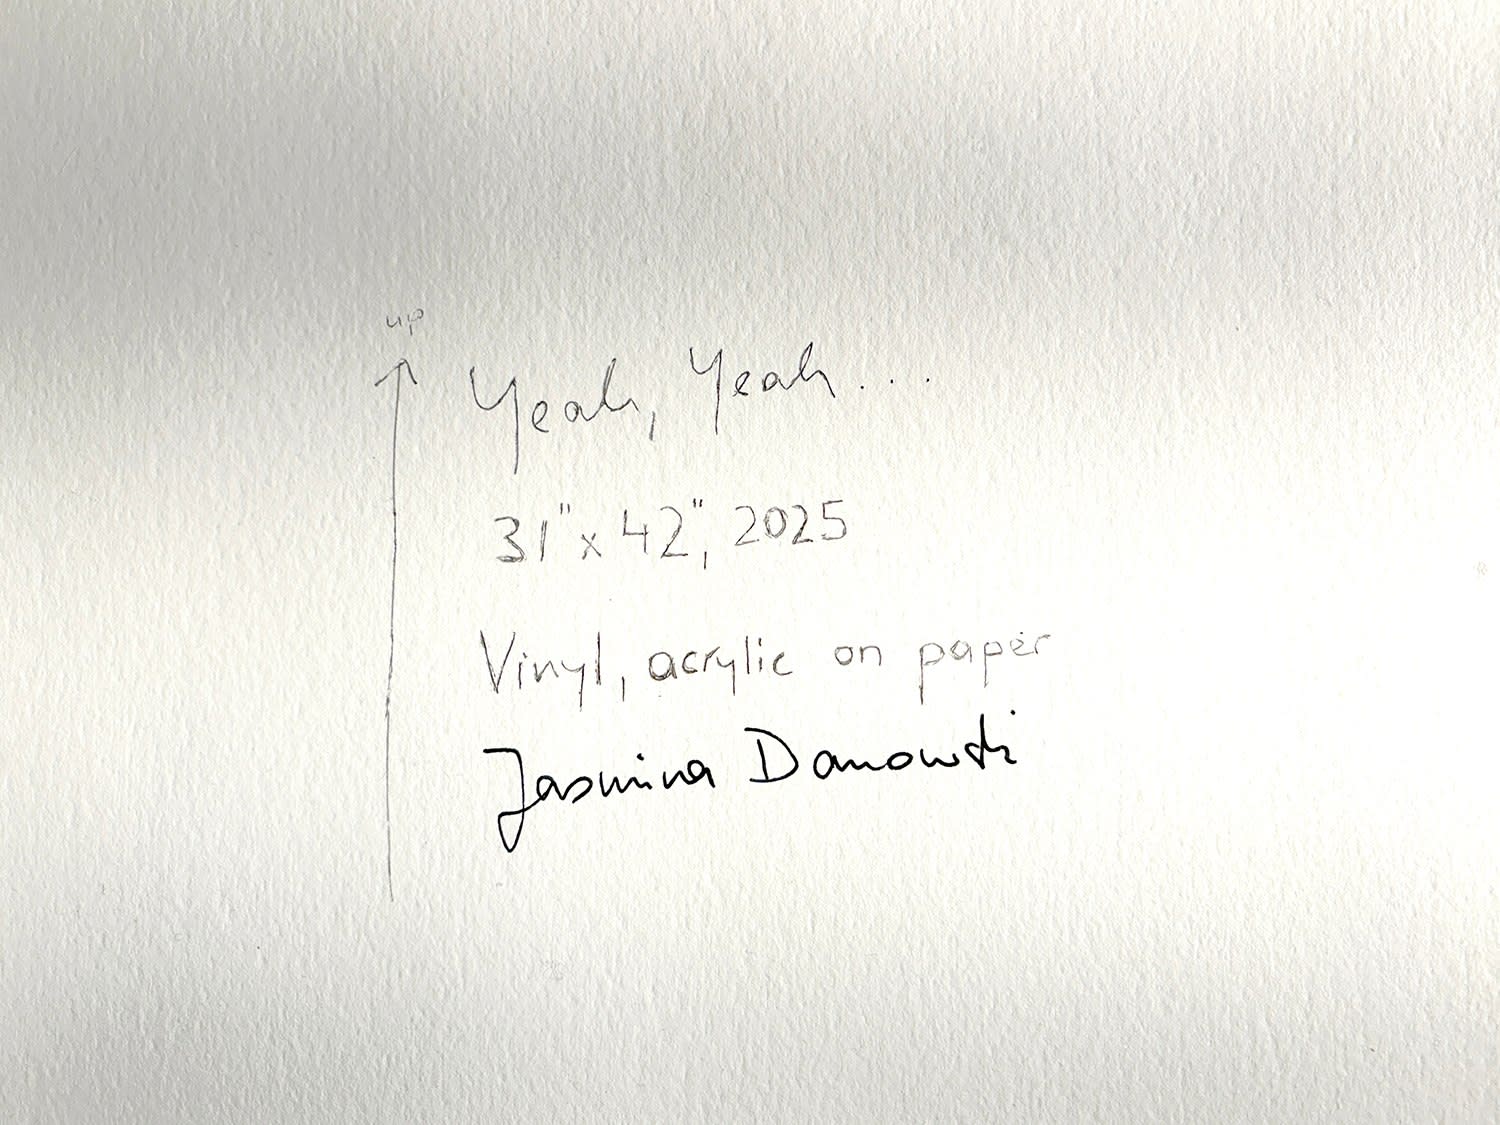 up
Yeah, Yeah....
31" x 42", 2025
Vinyl, acrylic on paper
Jasmina Danowski